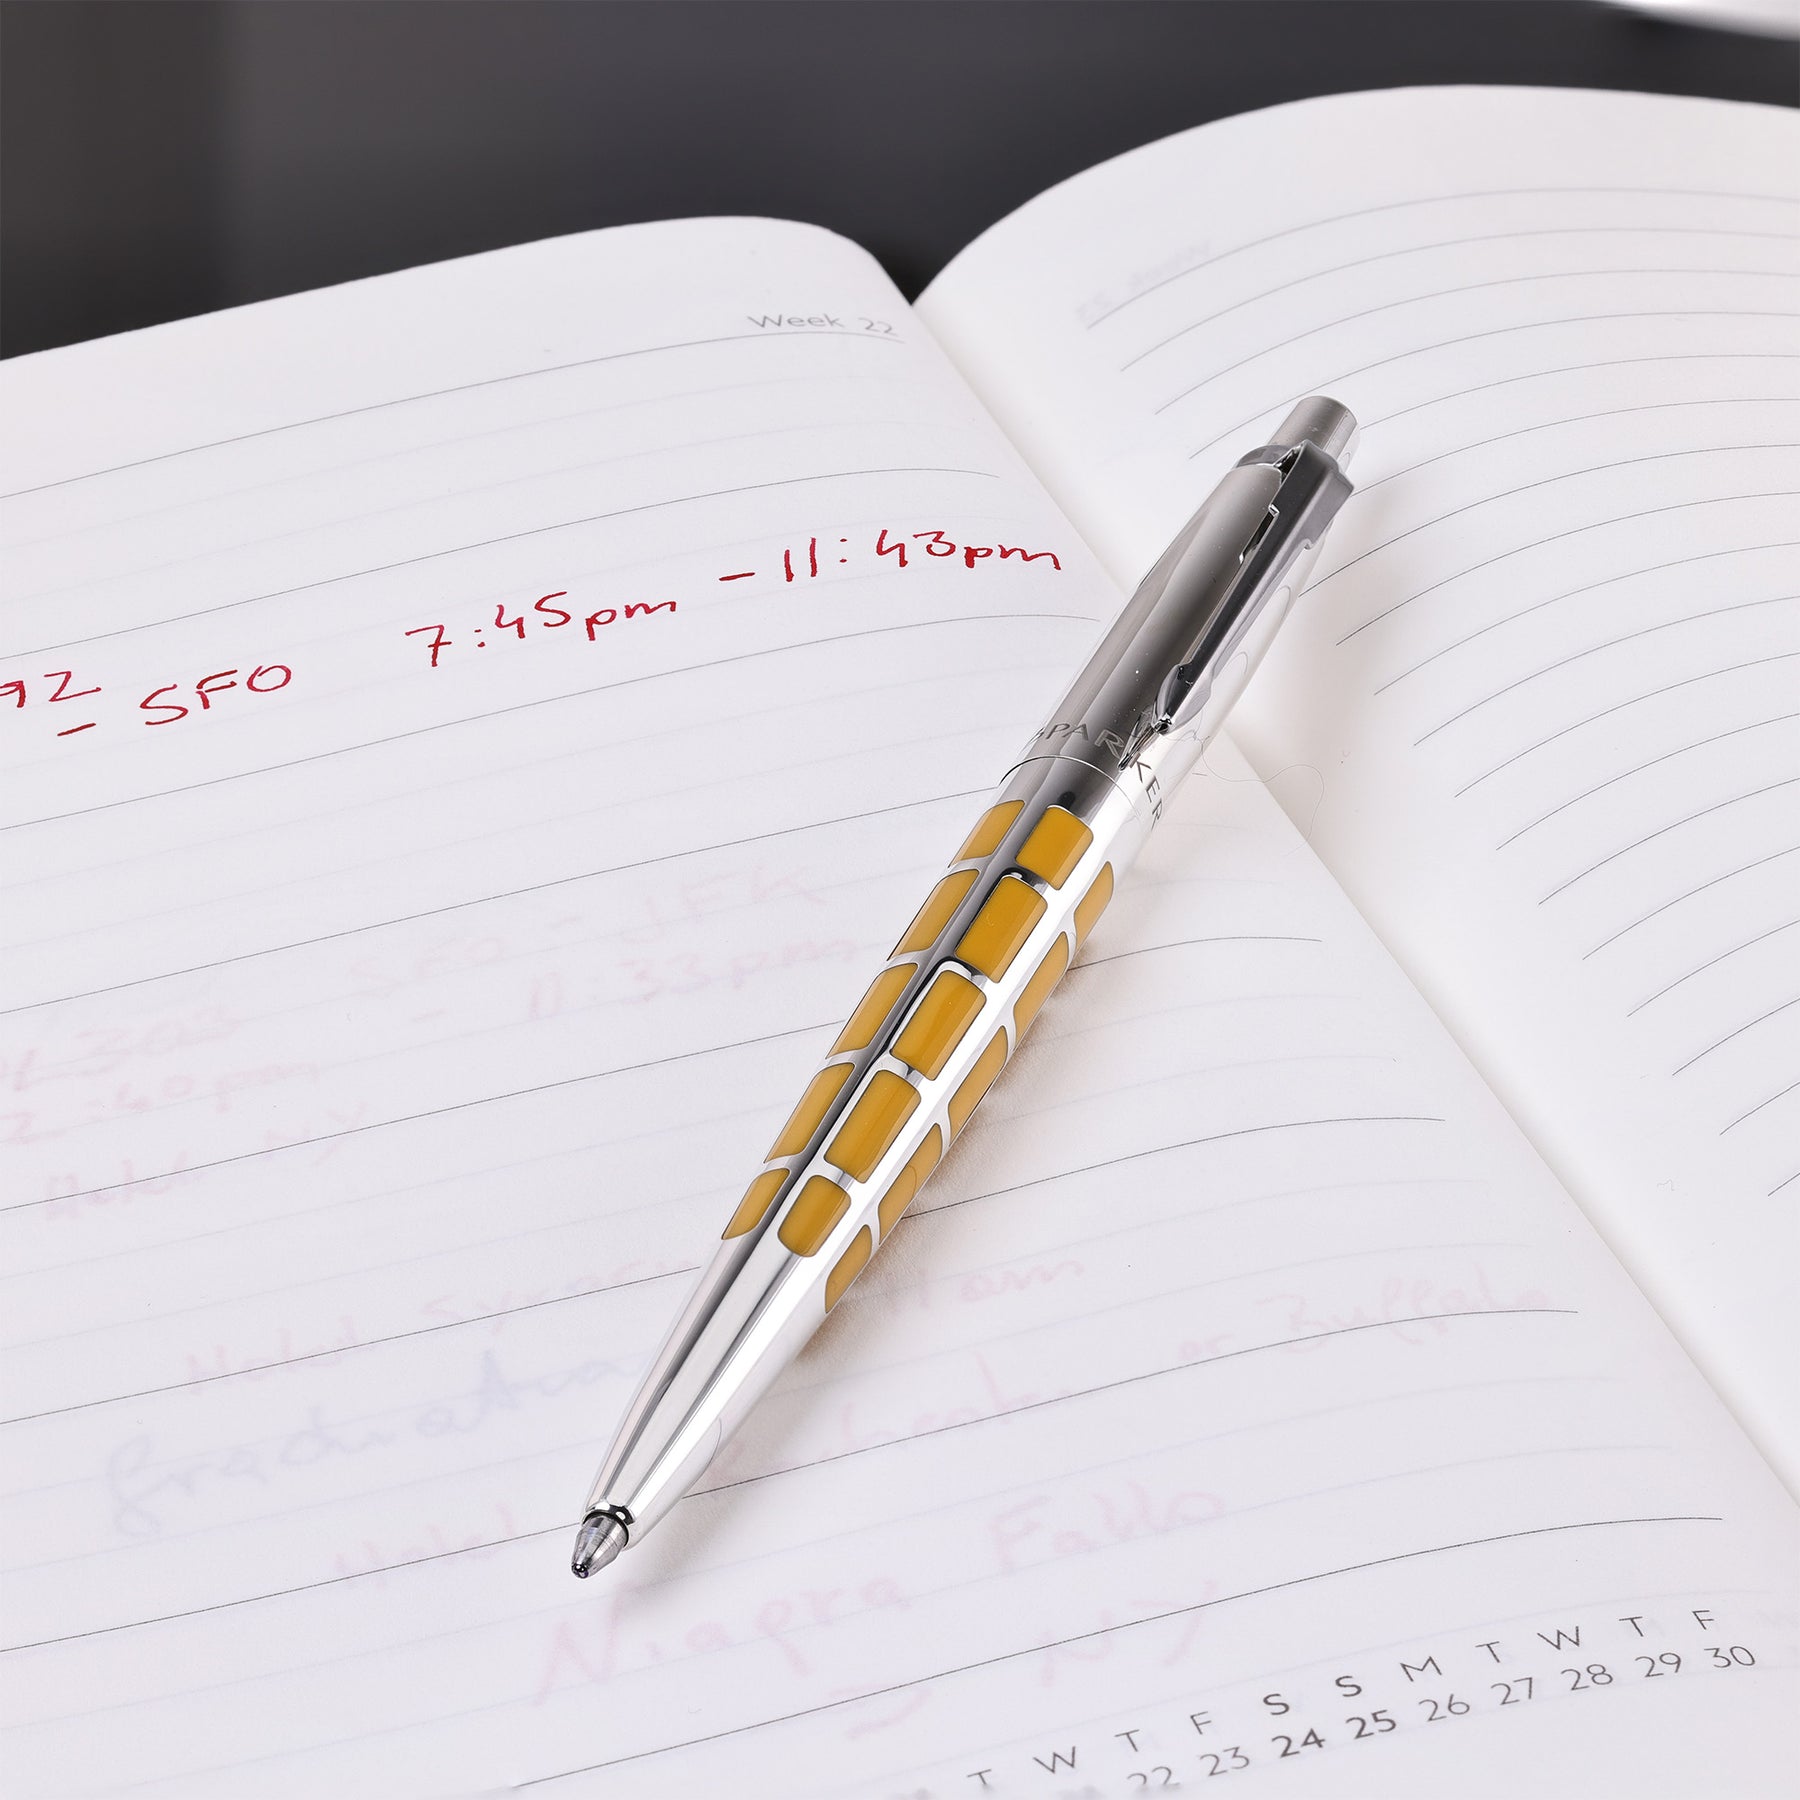 Week 22
7:45pm - 11:43pm
92
- SFO
PARKER
SFO - JFK
- 11:33pm
2:40pm
Hotel NY
Hotel
or Buffalo
Graduation
Hotel
Niagra Falls
NY
T W T F S S M T W T F
22 23 24 25 26 27 28 29 30